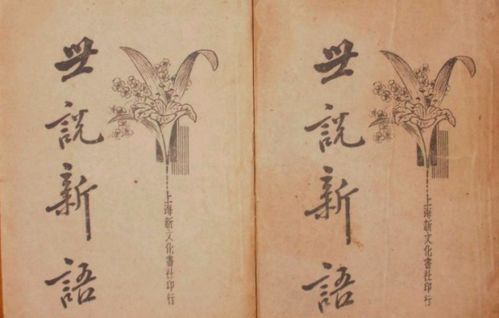 世説新語
上海新文化書社印行
世説新語
上海新文化書社印行